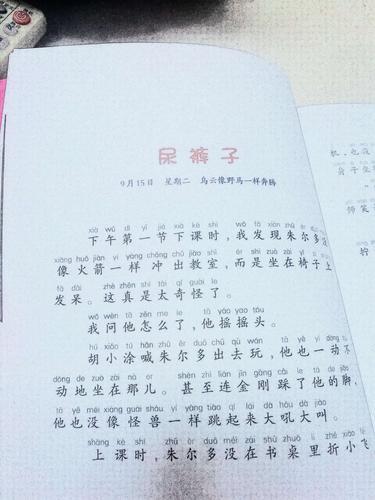 尿裤子
9月15日 星期二 乌云像野马一样奔腾
xià wǔ dì yī jié xià kè shí wǒ fā xiàn zhū ěr
下午第一节下课时，我发现朱尔多没
xiàng huǒ jiàn yí yàng chōng chū jiào shì
像火箭一样冲出教室，而是坐在椅子上
fā dāi zhè zhēn shì tài qí guài le
发呆。这真是太奇怪了。
wǒ wèn tā zěn me le tā yáo yao tóu
我问他怎么了，他摇摇头。
hú xiǎo tú hǎn zhū ěr duō chū qù wán tā yě yí dòng
胡小涂喊朱尔多出去玩，他也一动不
dòng de zuò zài nà er shèn zhì lián jīn gāng cǎi le tā de jiǎo
动地坐在那儿。甚至连金刚踩了他的脚，
tā yě méi xiàng guài shòu yí yàng tiào qǐ lái dà hǒu dà jiào
他也没像怪兽一样跳起来大吼大叫。
shàng kè shí zhū ěr duō méi zài shū zhuō lǐ zhé xiǎo fēi
上课时，朱尔多没在书桌里折小飞
机，也没
身子坐
师笔
拧